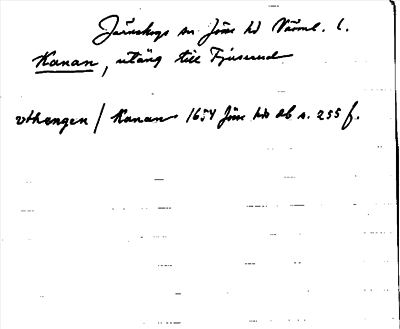 Järnskogs sn Jösse hd Värml. l.
Kanan, utäng till Fjuserud
vthengen / Kanan 1654 Jösse hds db s. 255 f.